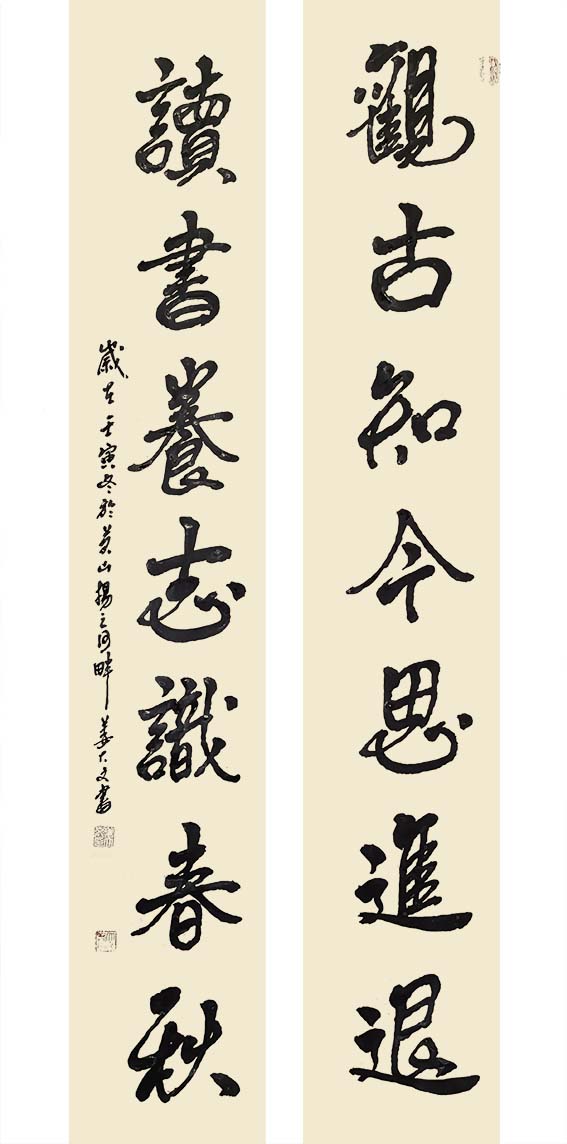 觀古知今思進退
讀書養志識春秋
歲在壬寅冬於英山揚之河畔 姜大文書